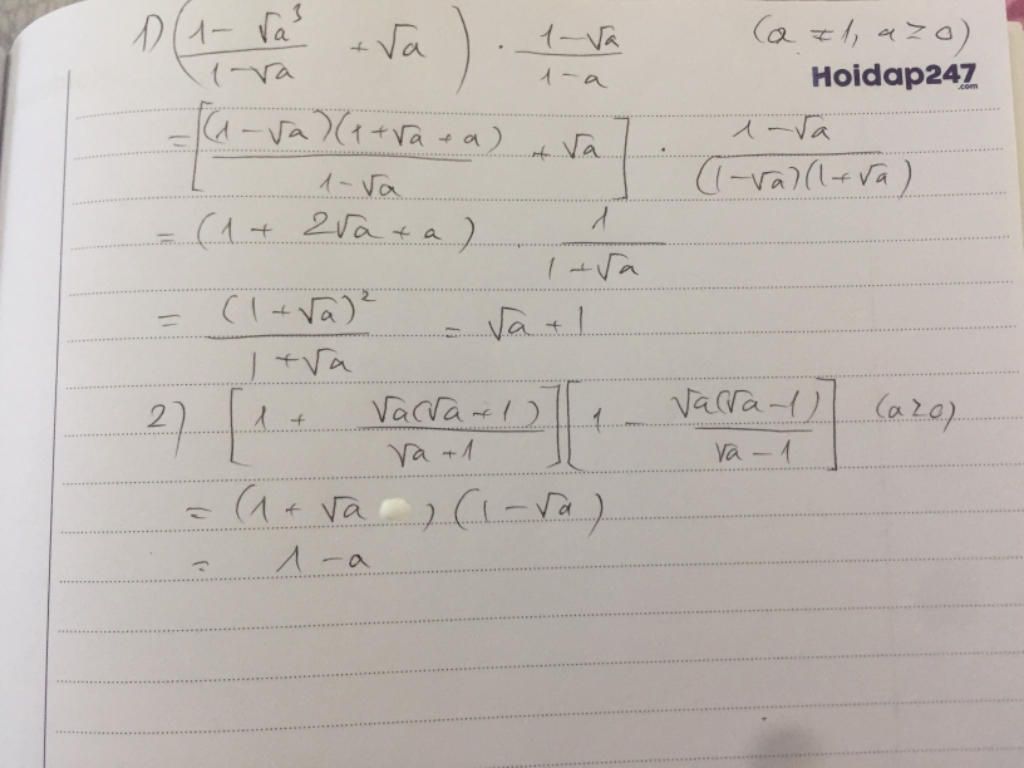 1) ( (1 - √a³)/(1 - √a) + √a ) · (1 - √a)/(1 - a) (a ≠ 1, a ≥ 0)
Hoidap247.com
= [ ((1 - √a)(1 + √a + a))/(1 - √a) + √a ] · (1 - √a)/((1 - √a)(1 + √a))
= (1 + 2√a + a) · 1/(1 + √a)
= (1 + √a)²/(1 + √a) = √a + 1
2) [ 1 + (√a(√a + 1))/(√a + 1) ] [ 1 - (√a(√a - 1))/(√a - 1) ] (a ≥ 0)
= (1 + √a)(1 - √a)
= 1 - a